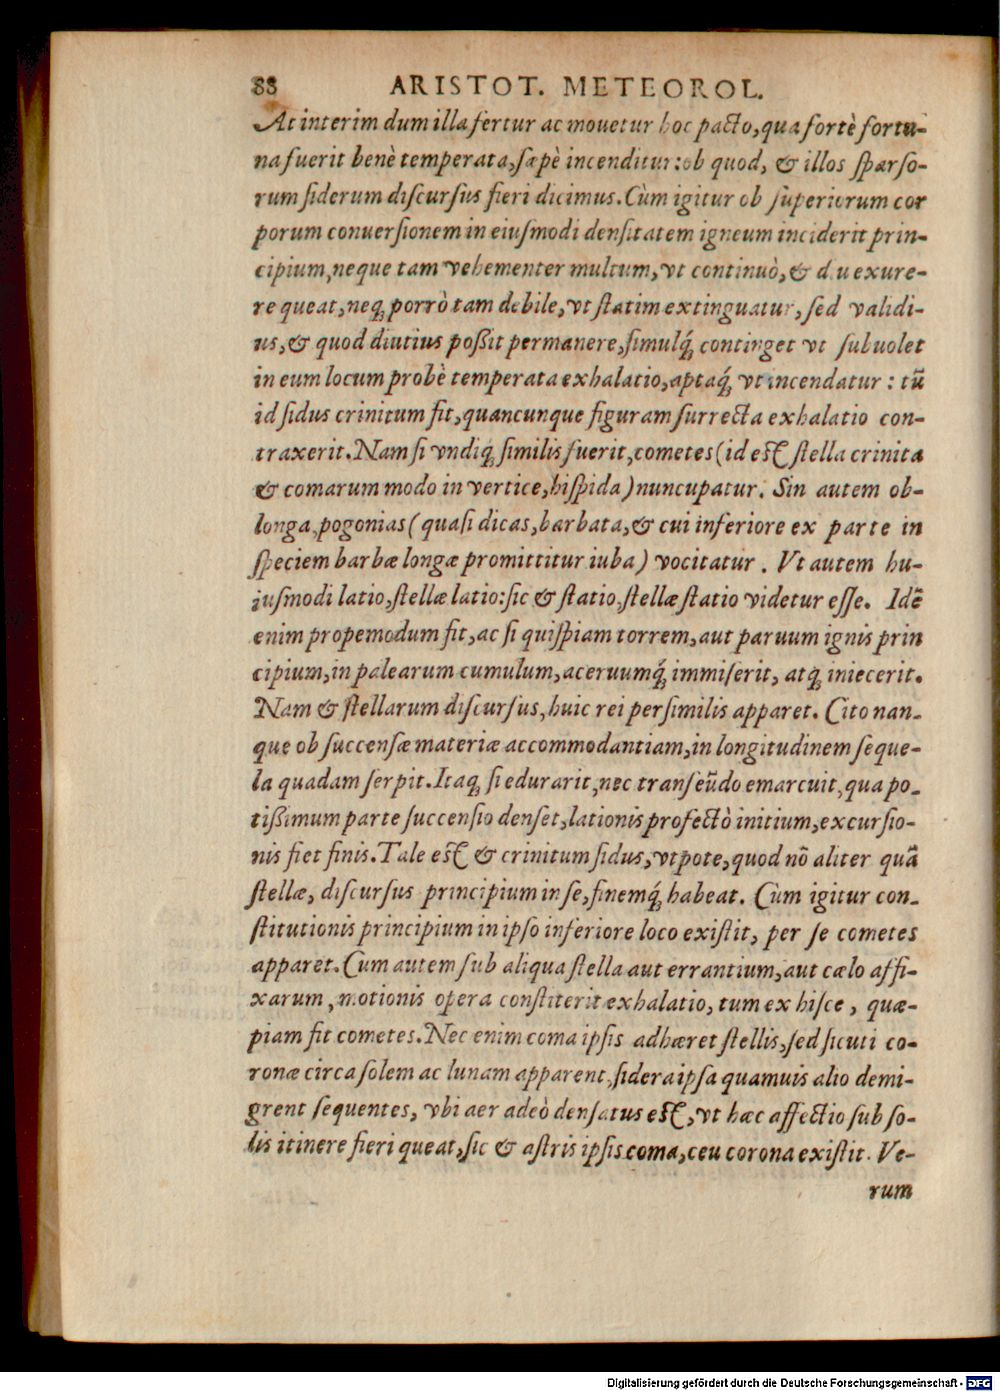 88 ARISTOT. METEOROL.
At interim dum illa fertur ac mouetur hoc pacto, qua fortè fortu-
na fuerit benè temperata, sæpè incenditur: ob quod, & illos sparso-
rum siderum discursus fieri dicimus. Cùm igitur ob superiorum cor
porum conuersionem in eiusmodi densitatem igneum inciderit prin-
cipium, neque tam vehementer multum, vt continuò, & diu exure-
re queat, neq; porrò tam debile, vt statim extinguatur, sed validi-
us, & quod diutius poßit permanere, simulq́; continget vt subuolet
in eum locum probè temperata exhalatio, aptaq́; vt incendatur: tũ
id sidus crinitum fit, quancunque figuram surrecta exhalatio con-
traxerit. Nam si vndiq; similis fuerit, cometes (id est stella crinita
& comarum modo in vertice, hispida) nuncupatur. Sin autem ob-
longa, pogonias (quasi dicas, barbata, & cui inferiore ex parte in
speciem barbæ longæ promittitur iuba) vocitatur. Vt autem hu-
iusmodi latio, stellæ latio: sic & statio, stellæ statio videtur esse. Idẽ
enim propemodum fit, ac si quispiam torrem, aut paruum ignis prin
cipium, in palearum cumulum, aceruumq́; immiserit, atq; iniecerit.
Nam & stellarum discursus, huic rei persimilis apparet. Cito nan-
que ob succensæ materiæ accommodantiam, in longitudinem seque-
la quadam serpit. Itaq; si edurarit, nec transeũdo emarcuit, qua po-
tißimum parte succensio denset, lationis profectò initium, excursio-
nis fiet finis. Tale est & crinitum sidus, vtpote, quod nõ aliter quã
stellæ, discursus principium in se, finemq́; habeat. Cùm igitur con-
stitutionis principium in ipso inferiore loco existit, per se cometes
apparet. Cum autem sub aliqua stella aut errantium, aut cælo affi-
xarum, motionis opera constiterit exhalatio, tum ex hisce, quæ-
piam fit cometes. Nec enim coma ipsis adhæret stellis, sed sicuti co-
ronæ circa solem ac lunam apparent, sidera ipsa quamuis alio demi-
grent sequentes, vbi aer adeò densatus est, vt hæc affectio sub so-
lis itinere fieri queat, sic & astris ipsis coma, ceu corona existit. Ve-
rum
Digitalisierung gefördert durch die Deutsche Forschungsgemeinschaft - DFG